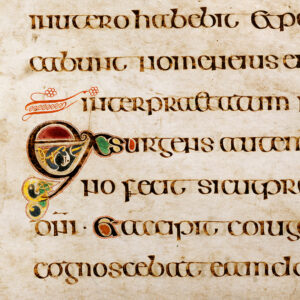 in utero habebit et pa
cabunt nomen eius em
interpraetatum n
Exsurgens autem
no fecit sicut pre
dni · Et accipit coniug
cognoscebat eam do